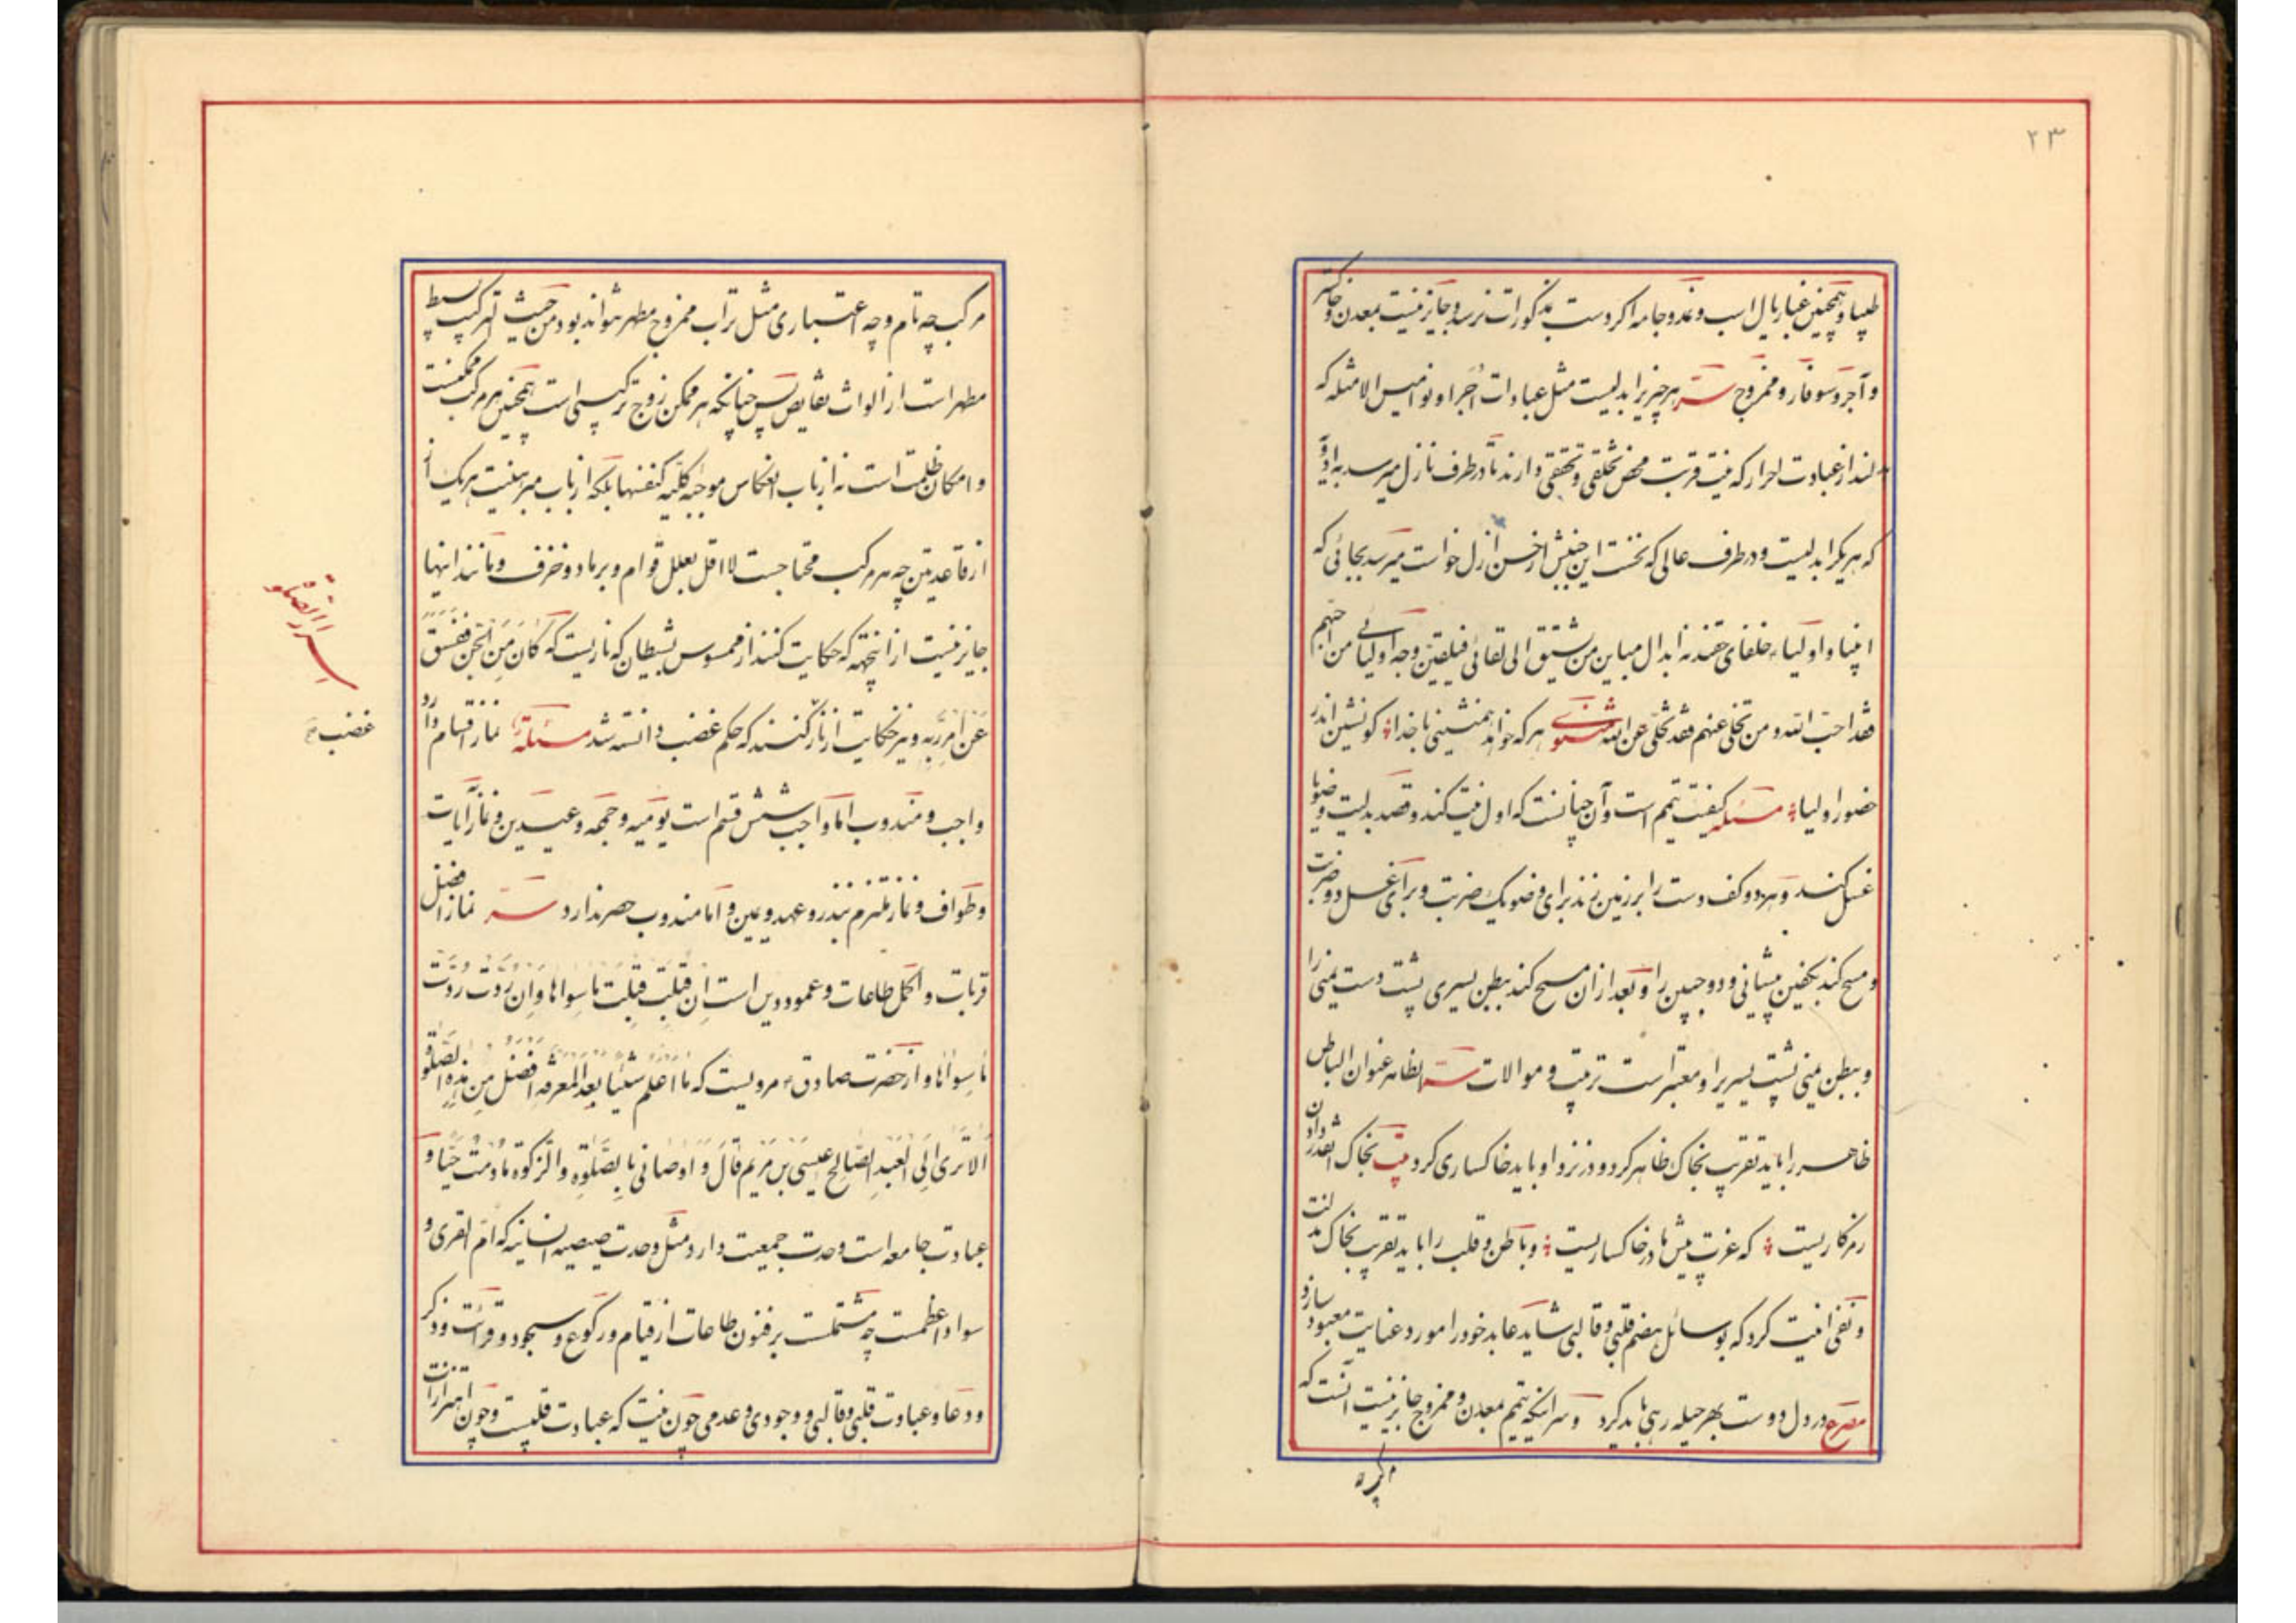 ۲۳
و همچنین غبار یال اسب و نمد و جامه اگر دست بمذکورات نرسد و جایز نیست بمعدن و خاکستر
و آجر و سوفار و ممزوج سر هر چیز را بدلیست مثل عبادات اجرا و نوامیس الامثله که
از عبادت احرار که نیت قربت محض تخلقی و تحققی دارند تا در طرف نازل میرسد
که هر یک را بدلیست و در طرف عالی که نخست این جنبش از حسن ازل خواست میرسد بجائی که
انبیا و اولیاء خلفای حقند نه ابدال مباین من یشتق الی لقائی فیلقین وجه اولیائی من احبهم
فقد احب الله و من تخلی عنهم فقد تخلی عن الله مثنوی هر که خواهد همنشینی با خدا کو نشین اندر
حضور اولیا مسئله کیفیت تیمم است و آن چنانست که اول نیت کند و قصد بدلیت وضو یا
غسل کند و هر دو کف دست را بر زمین زند برای وضو یک ضربت و برای غسل دو ضربت
و مسح کند بکفین پیشانی و دو جبین را و بعد از آن مسح کند ببطن یسری پشت دست یمنی را
و ببطن یمنی پشت یسری را و معتبر است ترتیب و موالات سر الظاهر عنوان الباطن
ظاهر را باید تقرب بخاک ظاهر کرد و در نزد او باید خاکساری کرد بیت بخاک
رمز کاریست که عزت پیش ما در خاکساریست و باطن و قلب را باید تقرب بخاک
و نفی انیت کرد که بوسائل هضم قلبی و قالبی شاید عابد خود را مورد عنایت معبود سازد
مصرع در دل دوست بهر حیله رهی باید کرد و سر اینکه تیمم بمعدن و ممزوج جایز نیست آنست که
مرکب چه تام و چه اعتباری مثل تراب ممزوج مطهر نتواند بود من حیث الترکیب بسیط
مطهر است از الواث نقایص پس چنانکه هر ممکن زوج ترکیبی است همچنین هر مرکب ممکنست
و امکان ظلمت است نه از باب انعکاس موجبه کلیه کنفسها بلکه از باب مبرهنیت هر یک از
از قاعدتین چه هر مرکب محتاجست لا اقل بعلل قوام و برماد و خزف و مانند اینها
جایز نیست از اینجهة که حکایت کنند از ممسوس بشیطان که ناریست که کان من الجن ففسق
عن امر ربه و نیز حکایت از نار کنند که حکم غضب دانسته شد مسئلة نماز اقسام دارد
واجب و مندوب اما واجب شش قسم است یومیه و جمعه و عیدین و نماز آیات
و طواف و نماز ملتزم بنذر و عهد و یمین و اما مندوب حصر ندارد سر نماز افضل
قربات و اکمل طاعات و عمود دین است ان قبلت قبلت ما سواها و ان ردت ردت
ما سواها و از حضرت صادق ع مرویست که ما اعلم شیئا بعد المعرفه افضل من هذه الصلوة
الا تری الی العبد الصالح عیسی بن مریم قال و اوصانی بالصلوة و الزکوة ما دمت حیا و
عبادت جامعه است وحدت جمعیت دارد مثل وحدت صیصیه انسانیه که ام القری و
سواد اعظمست چه مشتملست بر فنون طاعات از قیام و رکوع و سجود و قرائت و ذکر
و دعا و عبادت قلبی و قالبی و وجودی و عدمی چون نیت که عبادت قلبیست و چون
اسرار الصلوة
غضب